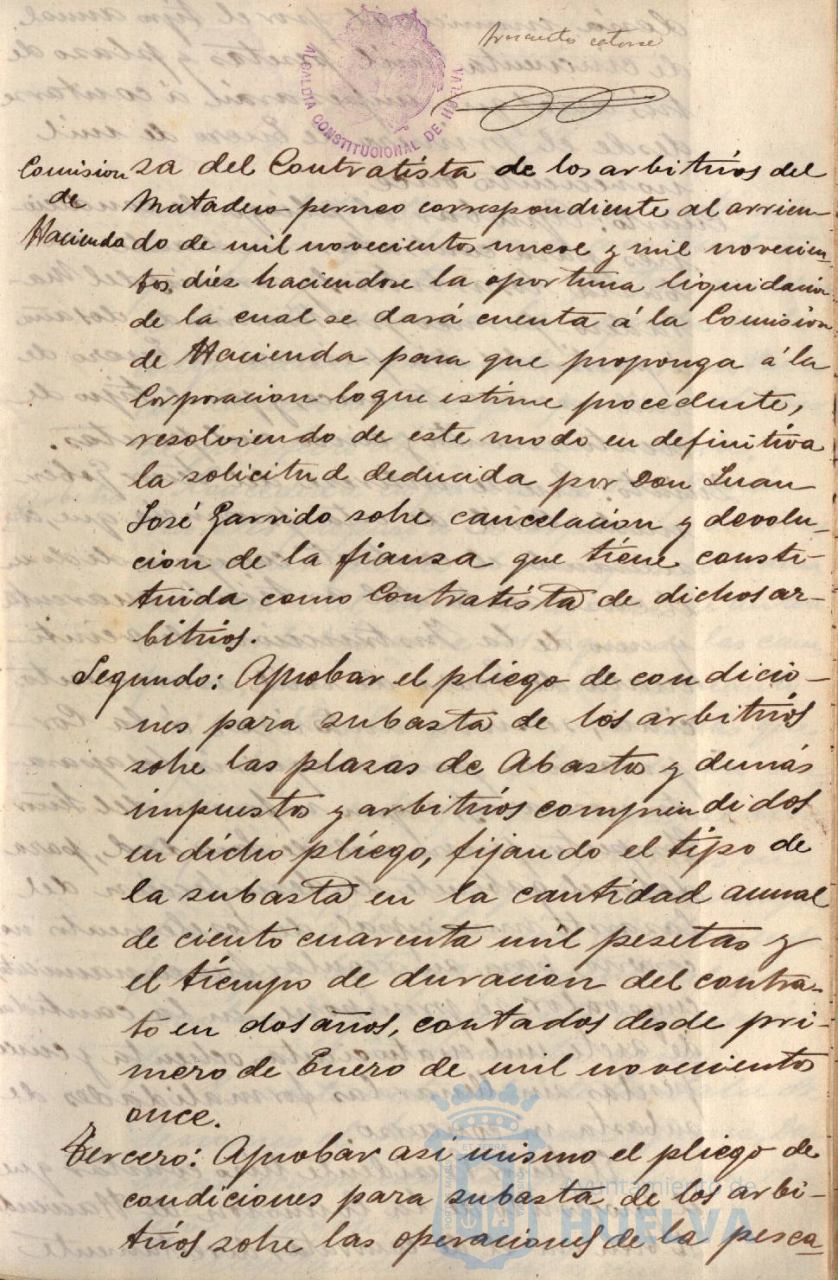 ALCALDIA CONSTITUCIONAL DE HUELVA
catorce
Comision
de
Hacienda
za del Contratista de los arbitrios del
Matadero porneo correspondiente al arrien-
do de mil novecientos nueve y mil novecien-
tos diez haciendose la oportuna liquidación
de la cual se dará cuenta á la Comision
de Hacienda para que proponga á la
Corporacion lo que estime procedente,
resolviendo de este modo en definitiva
la solicitud deducida por Don Juan
José Garrido sobre cancelacion y devolu-
cion de la fianza que tiene consti-
tuida como Contratista de dichos ar-
bitrios.
Segundo: Aprobar el pliego de condicio-
nes para subasta de los arbitrios
sobre las plazas de Abasto y demás
impuesto y arbitrios comprendidos
en dicho pliego, fijando el tipo de
la subasta en la cantidad anual
de ciento cuarenta mil pesetas y
el tiempo de duracion del contra-
to en dos años, contados desde pri-
mero de Enero de mil novecientos
once.
Tercero: Aprobar asi mismo el pliego de
condiciones para subasta de los arbi-
trios sobre las operaciones de la pesca
Ayuntamiento de
HUELVA